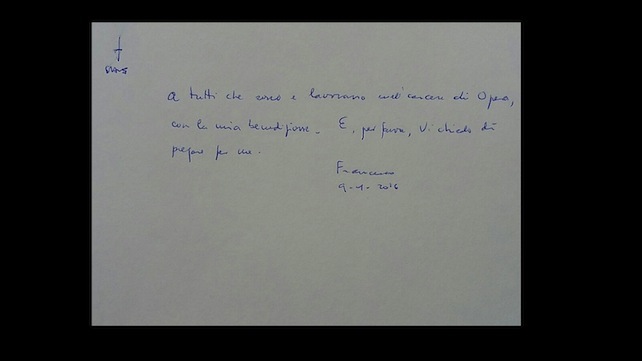 A tutti che sono e lavorano nel carcere di Opera,
con la mia benedizione. E, per favore, Vi chiedo di
pregare per me.
Francesco
9-1-2016